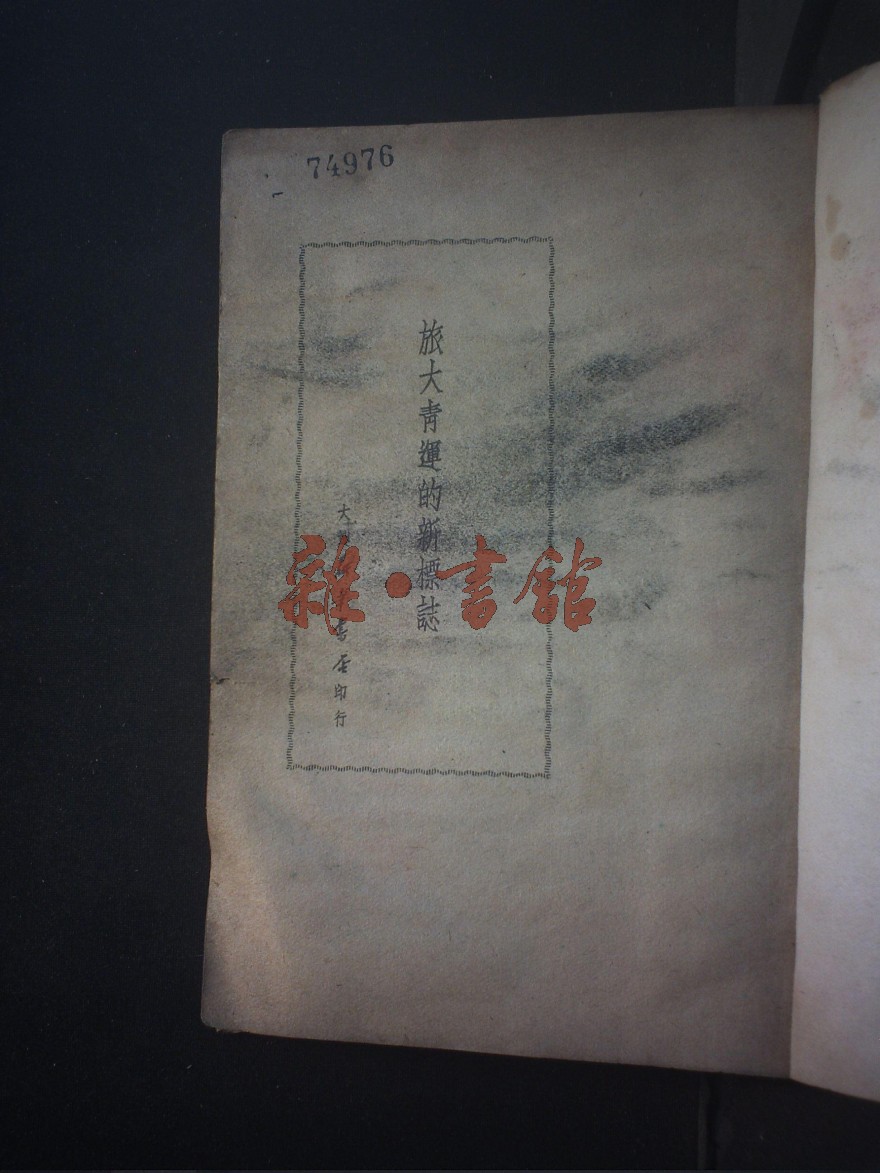 74976
旅大青運的新標誌
大書店印行
雜·書館